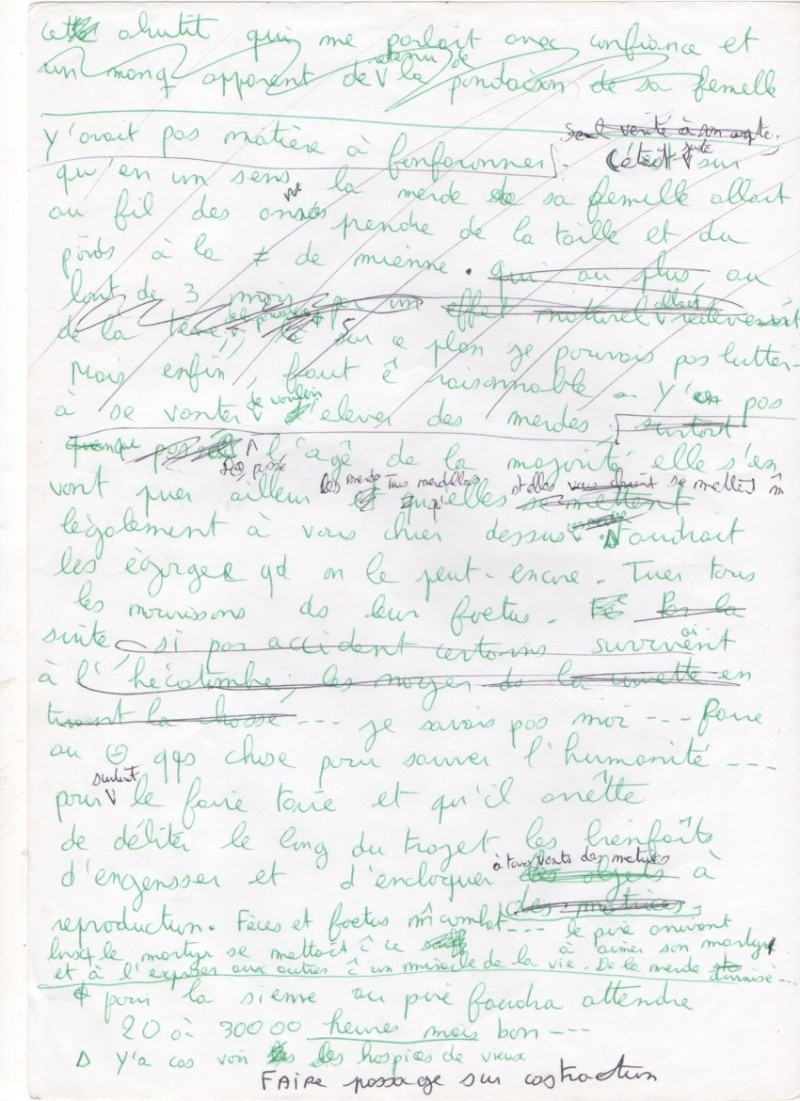 cette abruti qui me parlait avec confiance et
retenu de
un manq apparent de la pondaison de sa femelle
Seul verité à son compte.
Y'avait pas matière à fanfaronner.
C'était juste sur
qu'en un sens la merde de sa femelle allait
au fil des années prendre de la taille et du
poids à la ≠ de mienne. qui au plus au
bout de 3 mois par un effet naturel allait
de la terre, sur ce plan je pouvais pas lutter.
Mais enfin, faut ê raisonnable. Y'a pas
à se vanter de vouloir elever des merdes, surtout
passé l'agê de la majorité elle s'en
vont puer ailleur qu'elles se mettent
légalement à vous chier dessus. Δ Faudrait
les égorger qd on le peut-encore. Tuer tous
les nourissons ds leur foetus. Par la
suite si par accident certains survivent
à l'hécatombe, les noyer ds la cuvette en
tirant la chasse --- je savais pas moi --- faire
au ⊖ qqs chose pour sauver l'humanité ---
surtout
pour le faire taire et qu'il arrête
de débiter le long du trajet les bienfaits
à tous vents des matrices
d'engensser et d'encloquer des objets à
des matrices,
reproduction. Fèces et foetus m̂ combat --- le pire arrivant
lorsq le martyr se mettait à ce à aimer son martyr
et à l'exposer aux autres ĉ un miracle de la vie. De la merde divinisé ---
pour la sienne au pire faudra attendre
20 à 30000 heures mais bon ---
Δ Y'a cas voir les hospices de vieux
FAIRE passage sur castraction